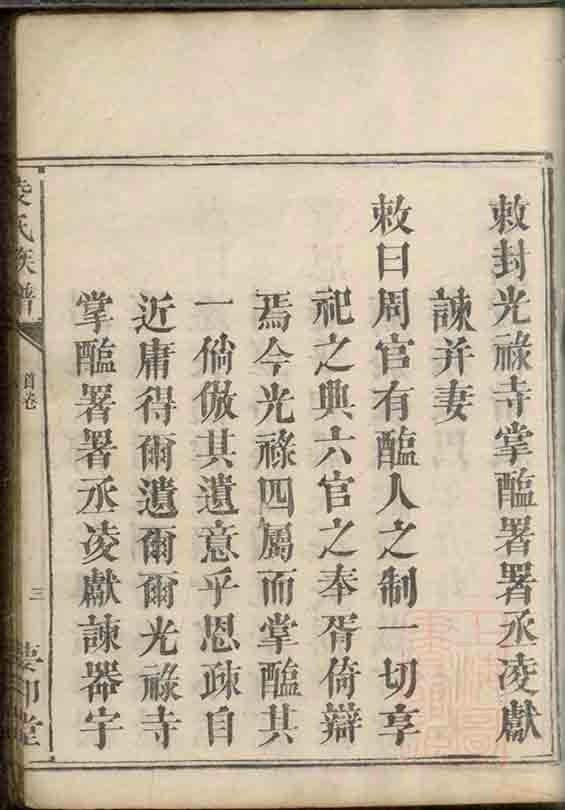 敕封光祿寺掌醢署署丞凌獻
諫并妻
敕曰周官有醢人之制一切享
祀之典六官之奉胥倚辯
焉今光祿四屬而掌醢其
一倘倣其遺意乎恩疎自
近庸得爾遺爾爾光祿寺
掌醢署署丞凌獻諫器宇
凌氏族譜
首卷
三